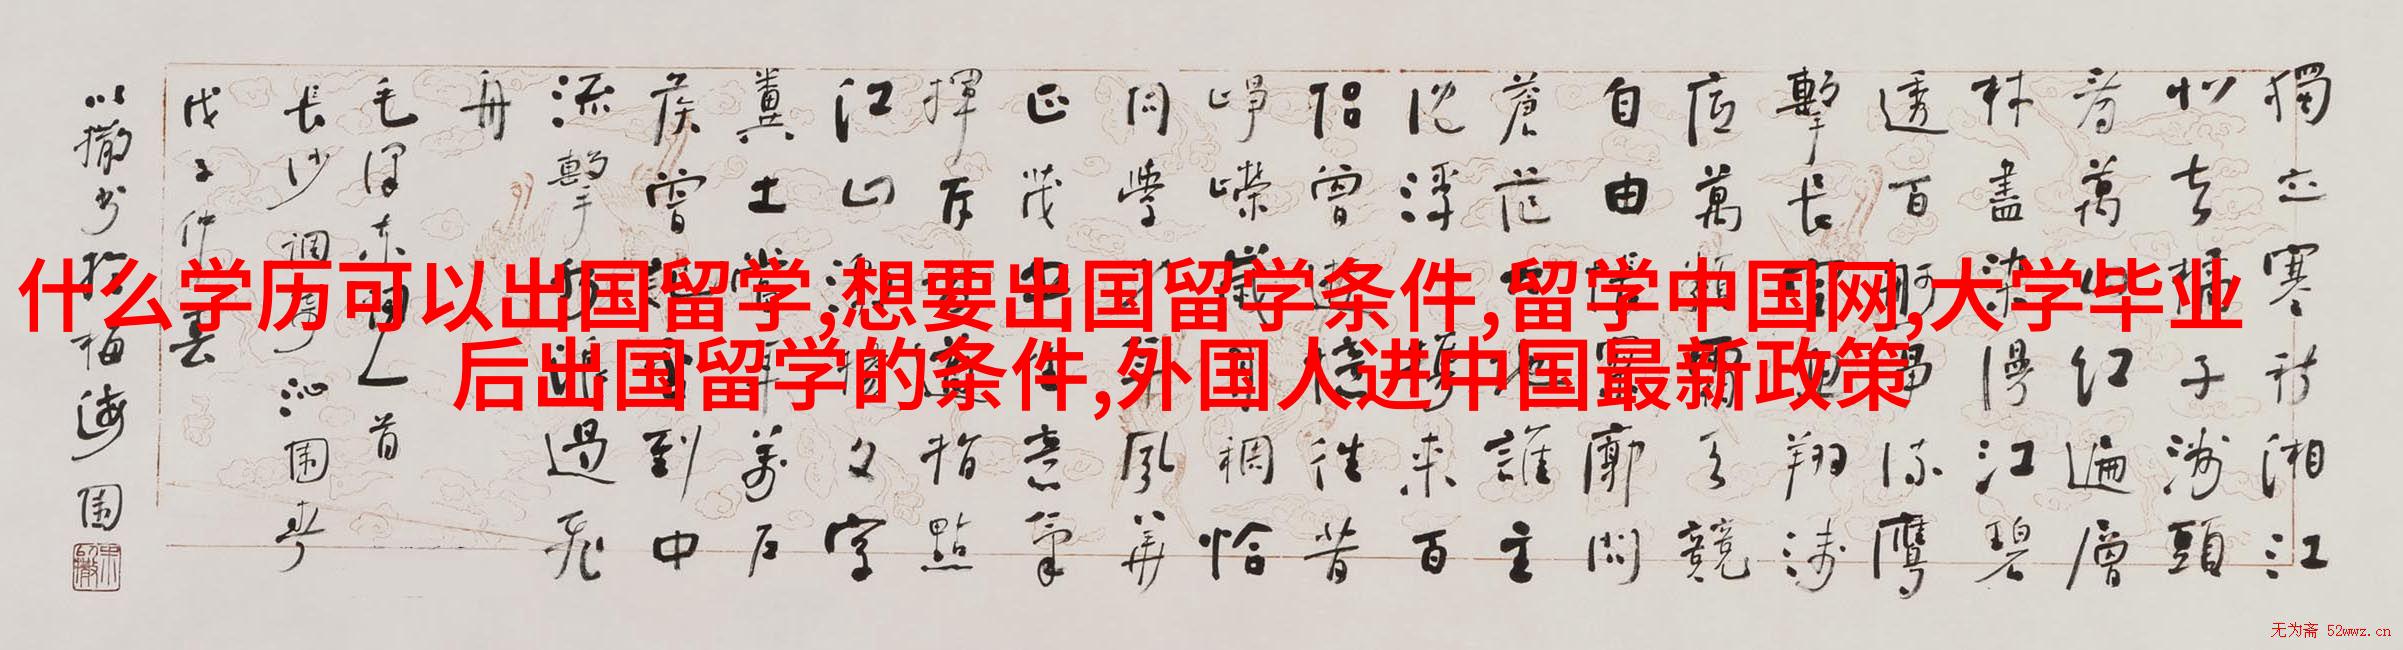 什么学历可以出国留学,想要出国留学条件,留学中国网,大学毕业
后出国留学的条件,外国人进中国最新政策
獨立寒秋湘江
北去橘子洲頭
看萬山红遍層
林盡染漫江碧
透百舸爭流鷹
擊長空魚翔淺
底萬類霜天競
自由悵寥廓問
蒼茫大地誰主
沈浮攜來百
侣曾遊憶往昔
崢嶸歲月稠恰
同學少年風華
正茂書生意氣
揮斥方遒指點
江山激揚文字
糞土當年萬户
侯曾記否到中
流擊水浪遏飛
舟
毛澤東詞一首
長沙調寄沁園春
戊子仲春
撤書於梅海園
无为斋 52wwz.cn